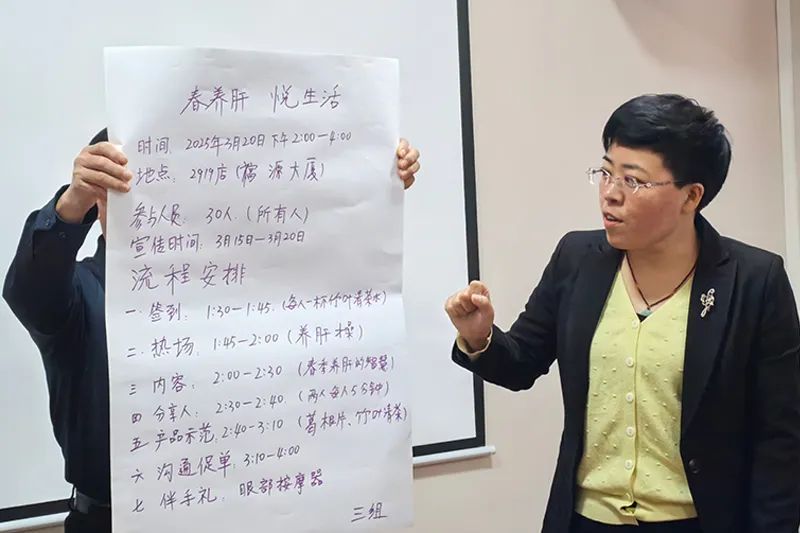 春养肝 悦生活
时间: 2025年3月20日下午2:00—4:00
地点: 2919店(福源大厦)
参与人员: 30人.(所有人)
宣传时间: 3月15日—3月20日
流程安排
一. 签到: 1:30—1:45. (每人一杯竹叶青茶水)
二. 热场: 1:45—2:00 (养肝操)
三 内容: 2:00—2:30 (春季养肝的智慧)
四 分享人: 2:30—2:40. (两人每人5分钟)
五 产品示范: 2:40—3:10 (葛根片、竹叶青茶)
六 沟通促单: 3:10—4:00
七 伴手礼: 眼部按摩器
三组